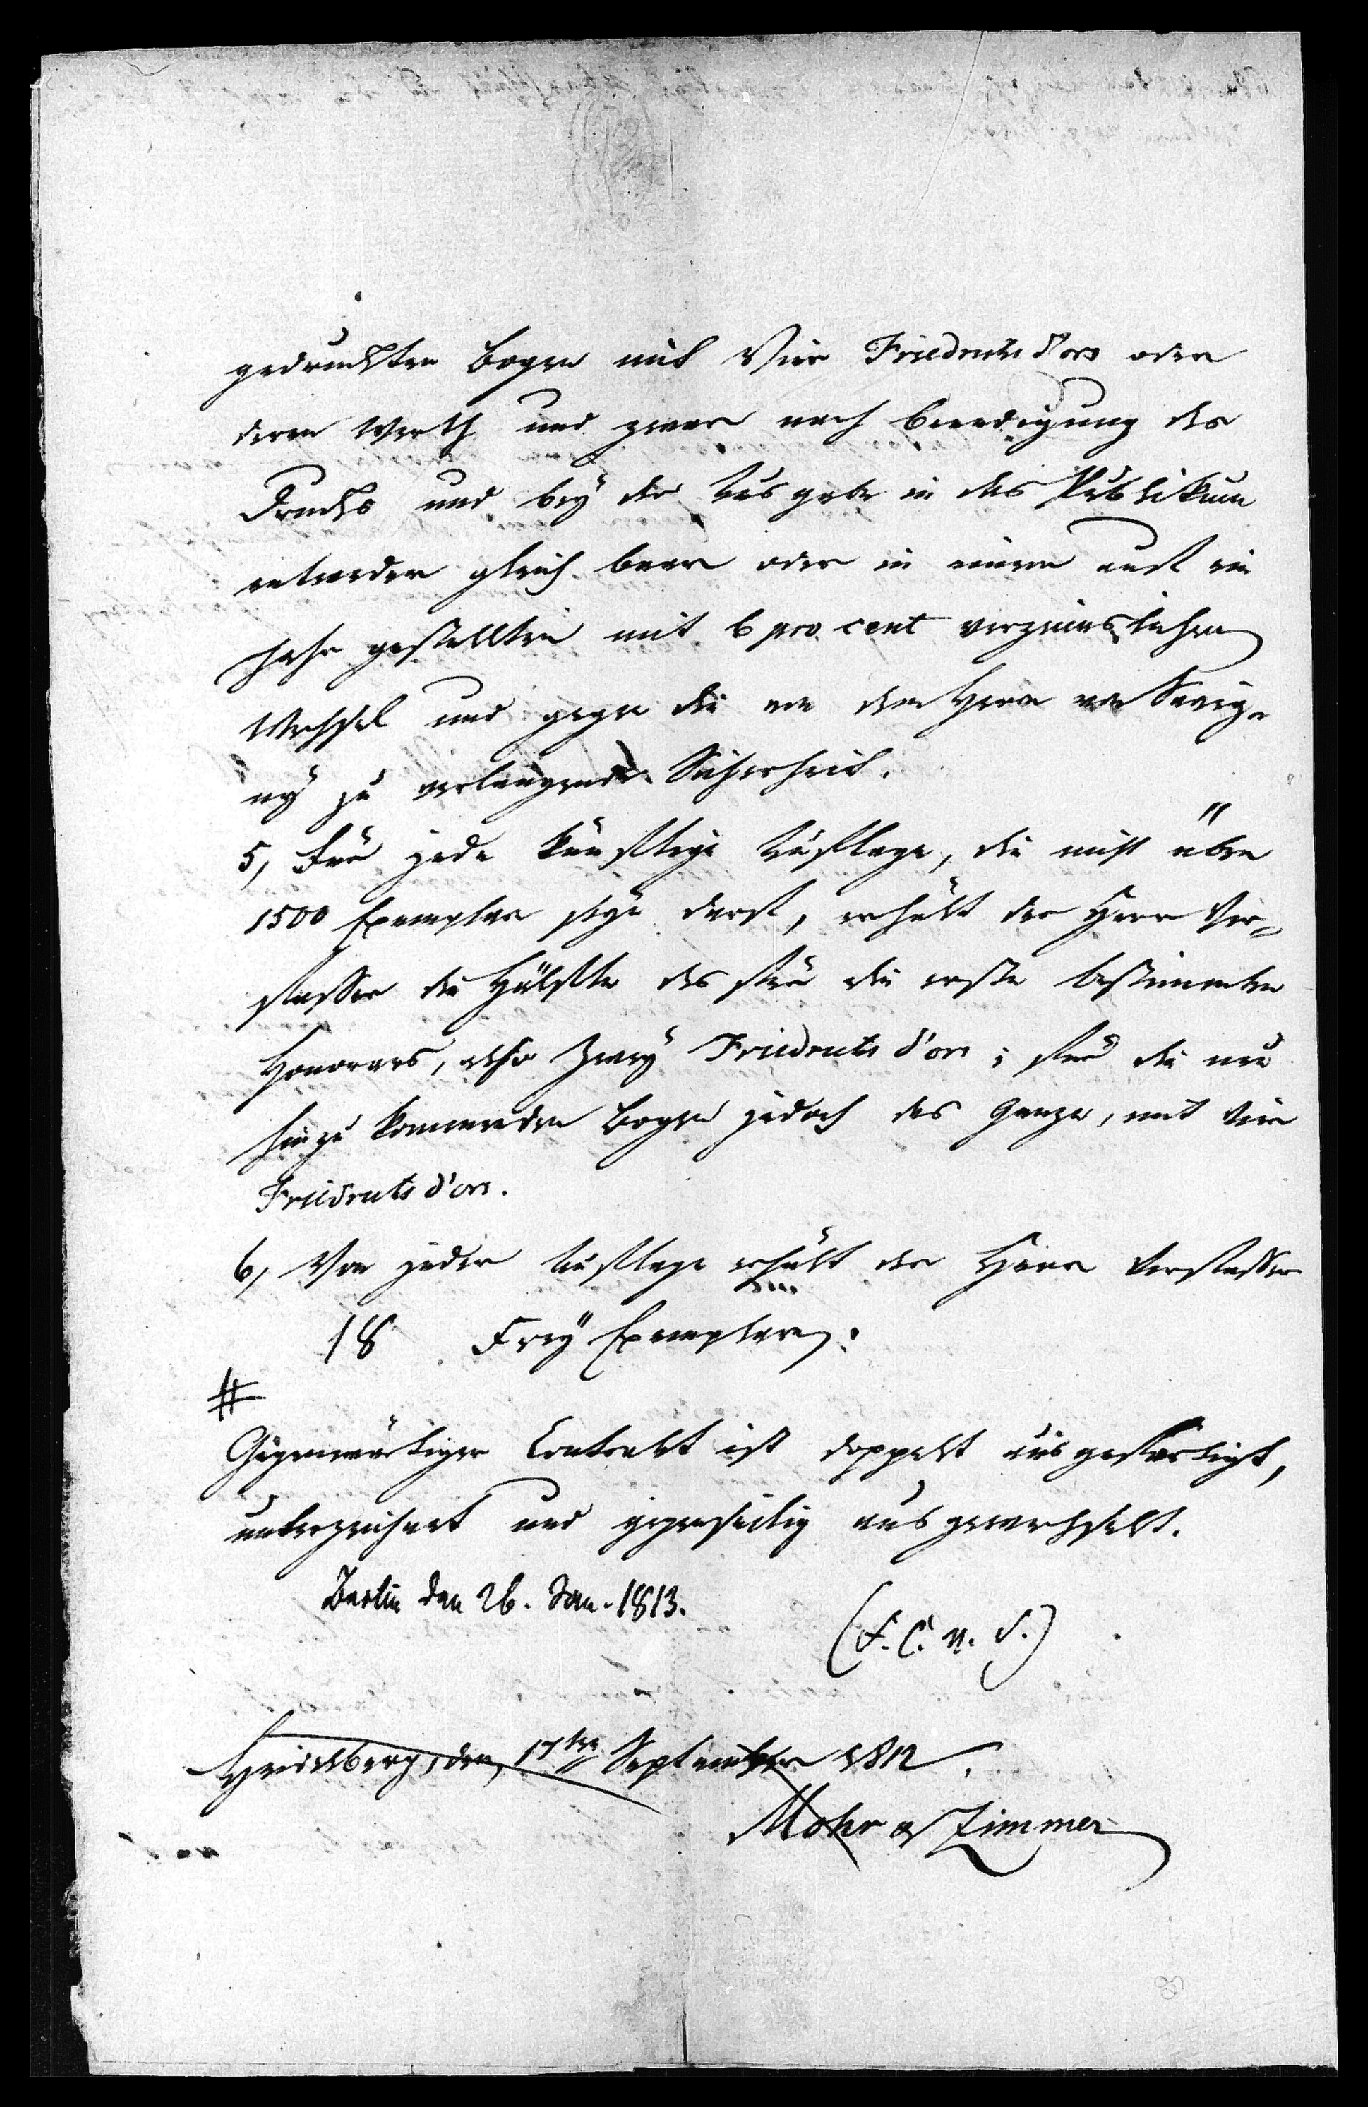 gedruckten Bogen mit Vier Friedrichs d'ors oder
deren Werth und zwar nach Beendigung des
Drucks und bey der Ausgabe in das Publikum
entweder gleich baar oder in einem aufs ein
Jahr gestellten mit 6 pro cent verzinslichen
Wechsel und gegen die von dem Herrn von Savig-
ny zu verlangende Sicherheit.
5, Für jede künftige Auflage, die nicht über
1500 Exemplar seyn darf, erhält der Herr Ver-
fasser die Hälfte des für die erste bestimmten
Honorars, also Zwey Friedrichs d'ors; für die neu
hinzu kommenden Bogen jedoch das Ganze, mit vier
Friedrichs d'ors.
6, Von jeder Auflage erhält der Herr Verfasser
18 Frey Exemplare.
#
Gegenwärtiger Contrakt ist doppelt ausgefertigt,
unterzeichnet und gegenseitig ausgewechselt.
Berlin den 26. Jan. 1813.
(F. C. v. S.)
Heidelberg, den 17ten September 1812.
Mohr & Zimmer